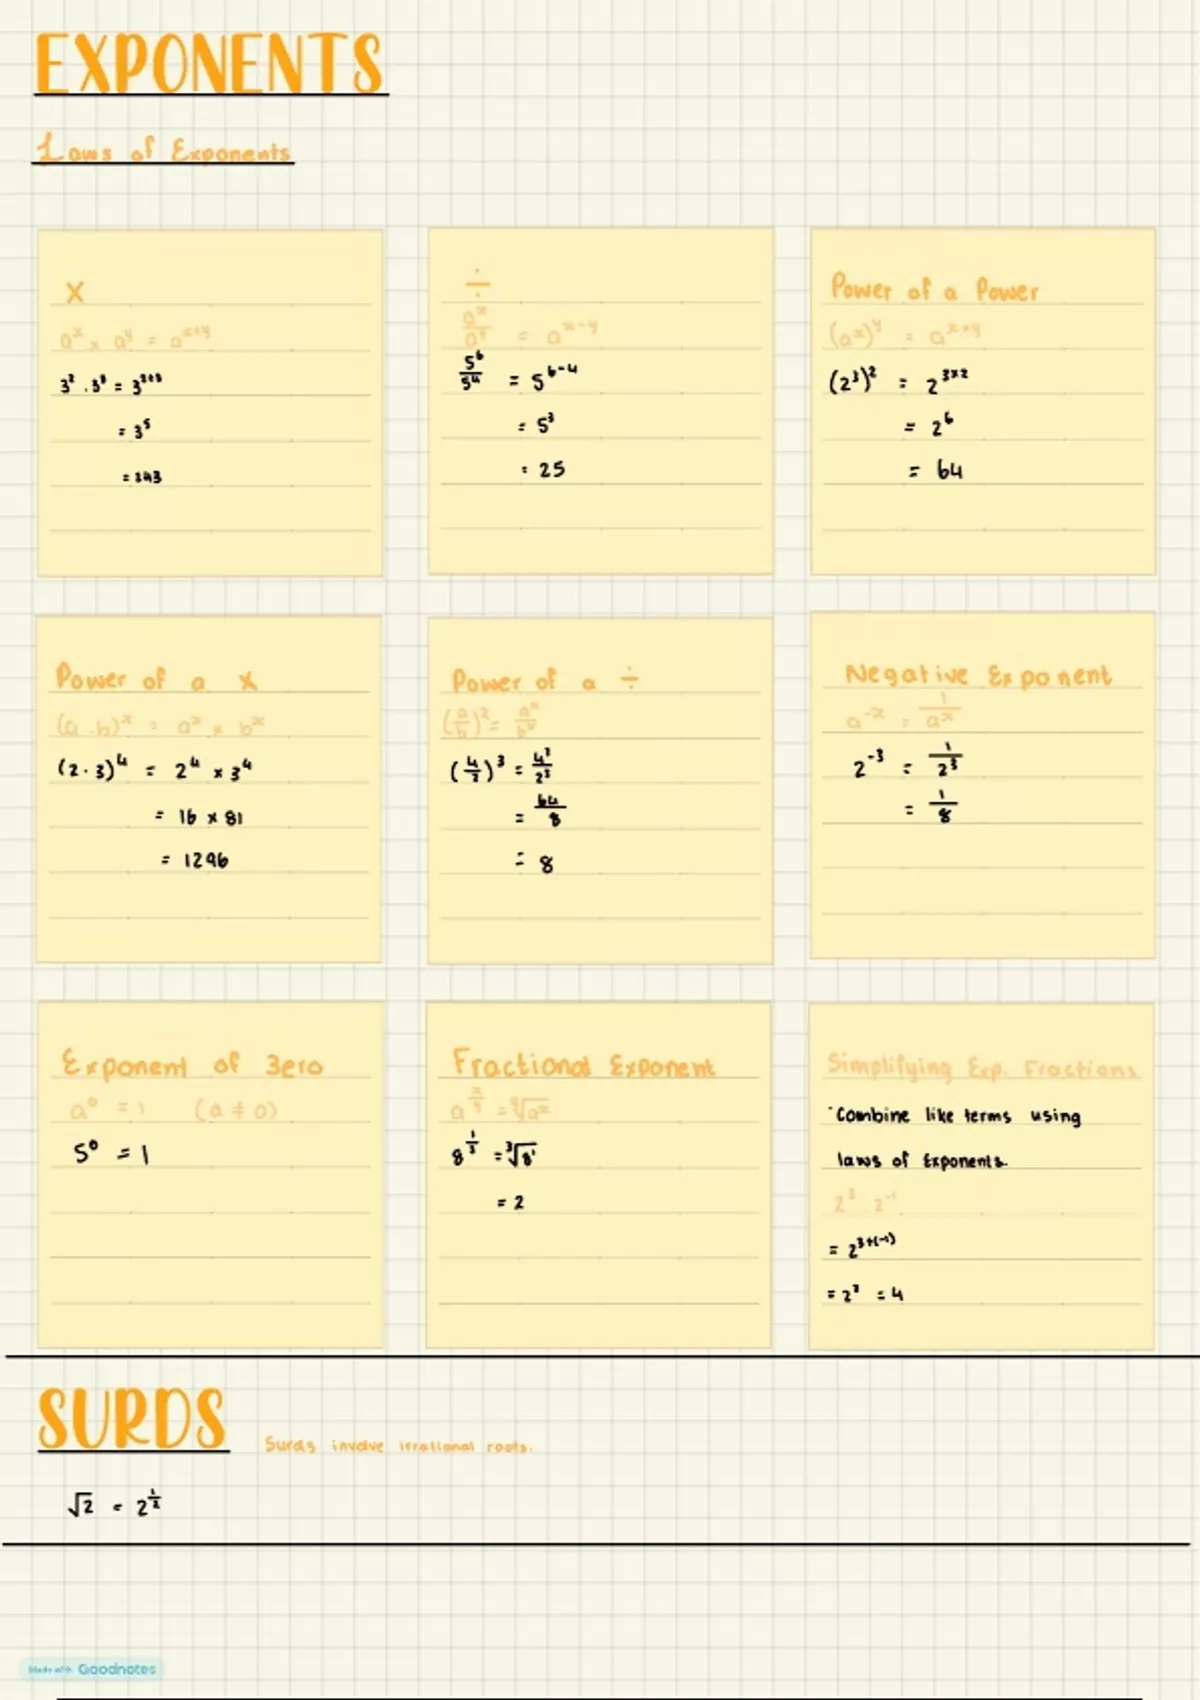 EXPONENTS
Laws of Exponents
X
aˣ × aʸ = aˣ⁺ʸ
3² · 3³ = 3²⁺³
= 3⁵
= 243
÷
aˣ/aʸ = aˣ⁻ʸ
5⁶/5⁴ = 5⁶⁻⁴
= 5³
= 25
Power of a Power
(aˣ)ʸ = aˣ*ʸ
(2³)² = 2³ˣ²
= 2⁶
= 64
Power of a X
(a · b)ˣ = aˣ × bˣ
(2 · 3)⁴ = 2⁴ × 3⁴
= 16 × 81
= 1296
Power of a ÷
(a/b)² = aˣ/bˣ
(4/2)³ = 4³/2³
= 64/8
= 8
Negative Exponent
a⁻ˣ = 1/aˣ
2⁻³ = 1/2³
= 1/8
Exponent of Zero
a⁰ = 1 (a ≠ 0)
5⁰ = 1
Fractional Exponent
a^(x/y) = ʸ√aˣ
8^(1/3) = ³√8¹
= 2
Simplifying Exp. Fractions
·Combine like terms using
laws of Exponents.
2³ · 2⁻¹
= 2³⁺⁽⁻¹⁾
= 2² = 4
SURDS
Surds involve irrational roots.
√2 = 2^(1/2)
Made with Goodnotes